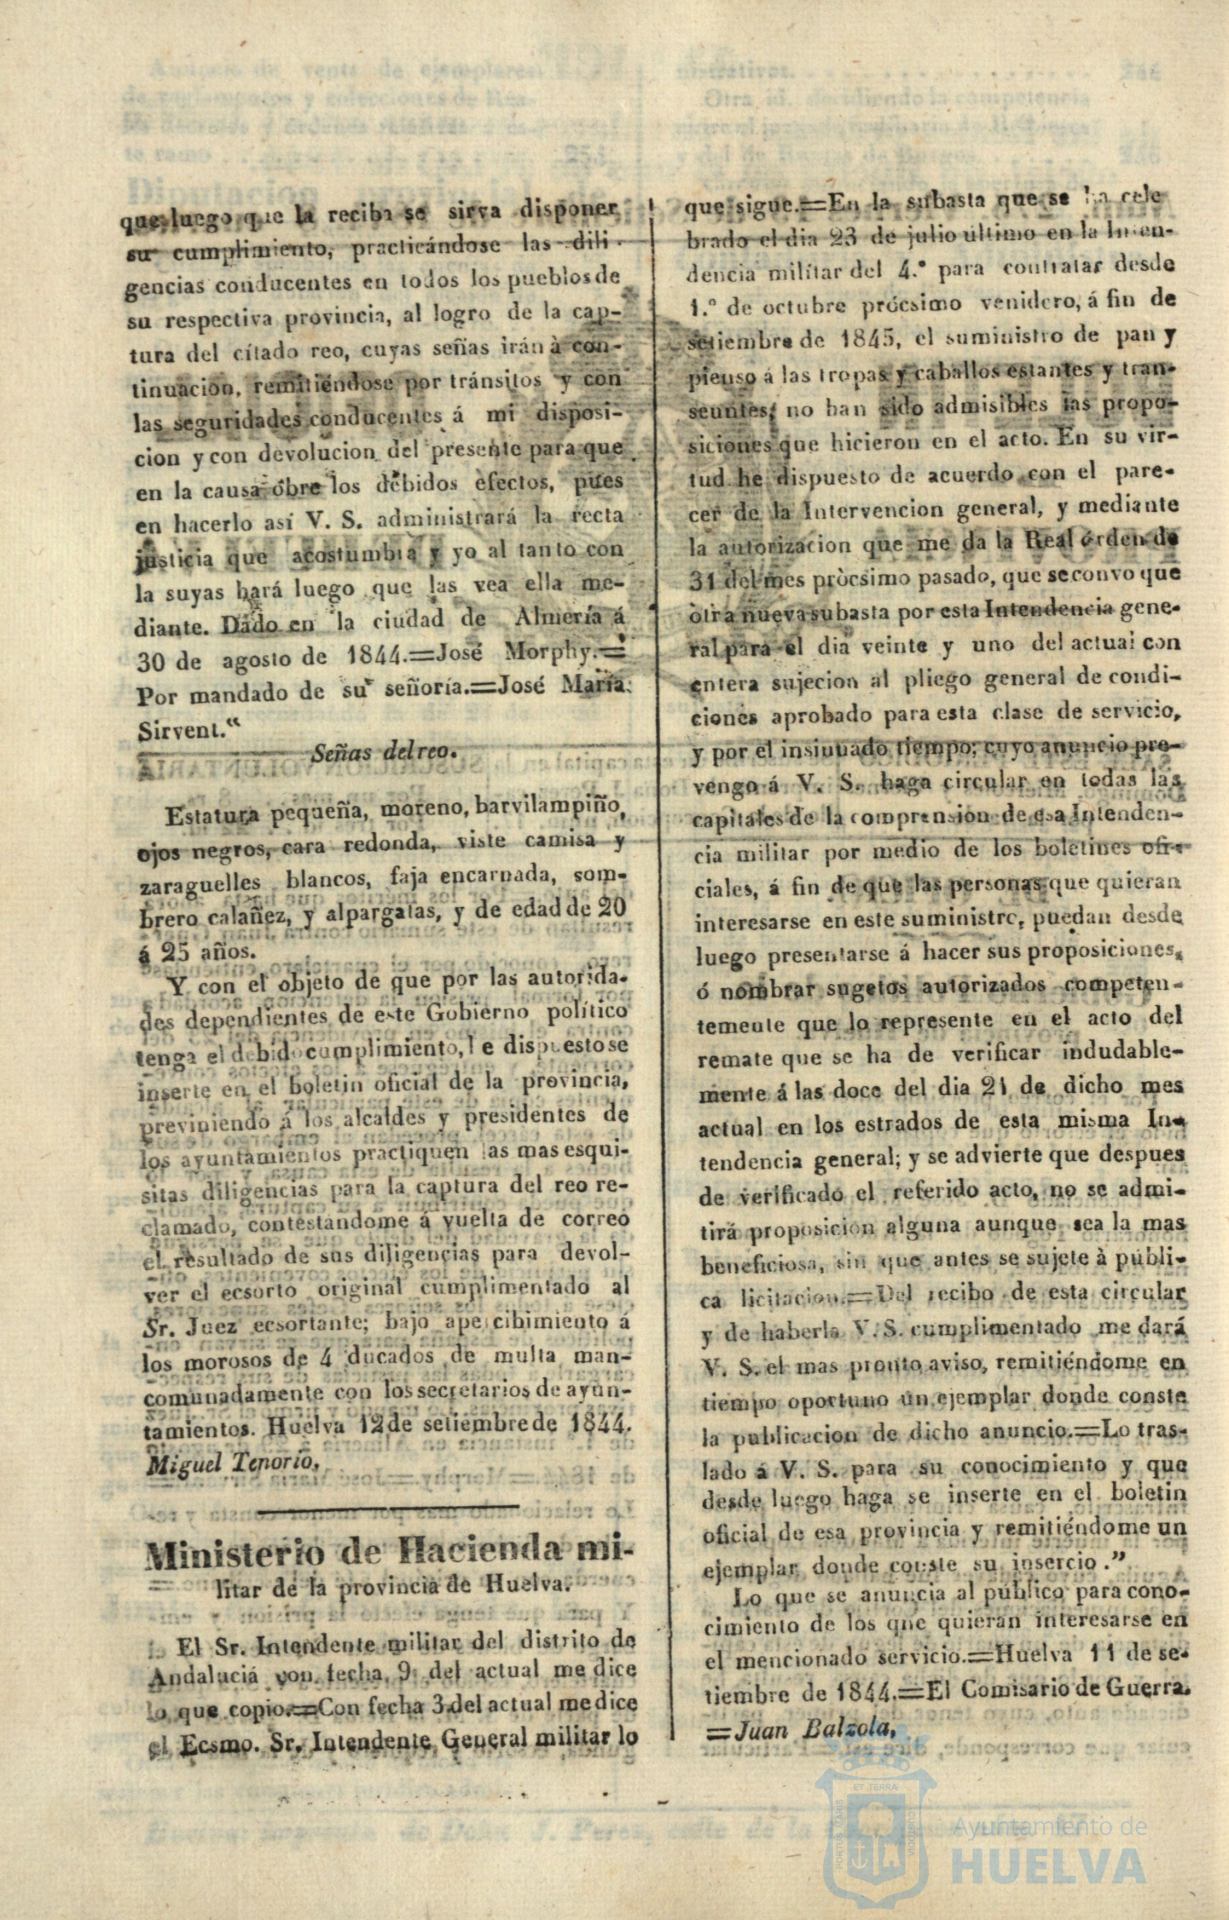 que luego que la reciba se sirva disponer
su cumplimiento, practicándose las dili-
gencias conducentes en todos los pueblos de
su respectiva provincia, al logro de la cap-
tura del citado reo, cuyas señas irán à con-
tinuacion, remitiéndose por tránsitos y con
las seguridades conducentes á mi disposi-
cion y con devolucion del presente para que
en la causa obre los debidos efectos, pues
en hacerlo así V. S. administrará la recta
justicia que acostumbra y yo al tanto con
la suyas hará luego que las vea ella me-
diante. Dado en la ciudad de Almería á
30 de agosto de 1844.=José Morphy.=
Por mandado de su señoría.=José María
Sirvent.“
Señas del reo.
Estatura pequeña, moreno, barvilampiño,
ojos negros, cara redonda, viste camisa y
zaraguelles blancos, faja encarnada, som-
brero calañez, y alpargatas, y de edad de 20
á 25 años.
Y con el objeto de que por las autorida-
des dependientes de este Gobierno político
tenga el debido cumplimiento, he dispuesto se
inserte en el boletin oficial de la provincia,
previniendo á los alcaldes y presidentes de
los ayuntamientos practiquen las mas esqui-
sitas diligencias para la captura del reo re-
clamado, contestándome á vuelta de correo
el resultado de sus diligencias para devol-
ver el ecsorto original cumplimentado al
Sr. Juez ecsortante; bajo apercibimiento á
los morosos de 4 ducados de multa man-
comunadamente con los secretarios de ayun-
tamientos. Huelva 12 de setiembre de 1844.
Miguel Tenorio.
Ministerio de Hacienda mi-
litar de la provincia de Huelva.
El Sr. Intendente militar del distrito de
Andaluciá von fecha 9 del actual me dice
lo que copio.=Con fecha 3 del actual me dice
el Ecsmo. Sr. Intendente General militar lo
que sigue.=En la subasta que se ha cele
brado el dia 23 de julio último en la Inten-
dencia militar del 4.º para contratar desde
1.º de octubre prócsimo venidero, á fin de
setiembre de 1845, el suministro de pan y
pienso á las tropas y caballos estantes y tran-
seuntes, no han sido admisibles las propo-
siciones que hicieron en el acto. En su vir-
tud he dispuesto de acuerdo con el pare-
cer de la Intervencion general, y mediante
la autorizacion que me da la Real órden de
31 del mes pròcsimo pasado, que se convoque
otra nueva subasta por esta Intendencia gene-
ral para el dia veinte y uno del actual con
entera sujecion al pliego general de condi-
ciones aprobado para esta clase de servicio,
y por el insinuado tiempo; cuyo anuncio pre-
vengo á V. S. haga circular en todas las
capitales de la comprension de esa Intenden-
cia militar por medio de los boletines ofi-
ciales, á fin de que las personas que quieran
interesarse en este suministro, puedan desde
luego presentarse á hacer sus proposiciones,
ó nombrar sugetos autorizados competen-
temente que lo represente en el acto del
remate que se ha de verificar indudable-
mente á las doce del dia 21 de dicho mes
actual en los estrados de esta misma In-
tendencia general; y se advierte que despues
de verificado el referido acto, no se admi-
tirá proposicion alguna aunque sea la mas
beneficiosa, sin que antes se sujete à públi-
ca licitacion.=Del recibo de esta circular
y de haberla V. S. cumplimentado me dará
V. S. el mas pronto aviso, remitiéndome en
tiempo oportuno un ejemplar donde conste
la publicacion de dicho anuncio.=Lo tras-
lado á V. S. para su conocimiento y que
desde luego haga se inserte en el boletin
oficial de esa provincia y remitiéndome un
ejemplar donde conste su insercio.”
Lo que se anuncia al público para cono-
cimiento de los que quieran interesarse en
el mencionado servicio.=Huelva 11 de se-
tiembre de 1844.=El Comisario de Guerra.
=Juan Balzola.
Ayuntamiento de
HUELVA